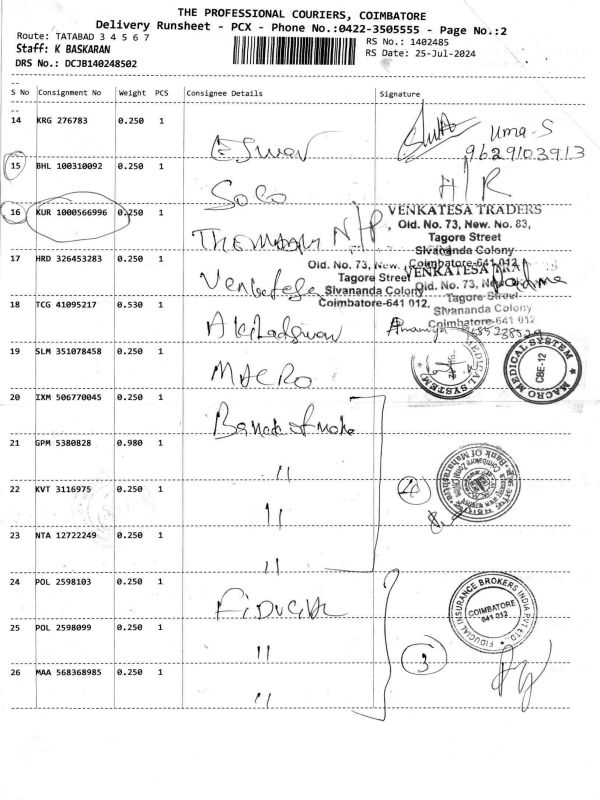 THE PROFESSIONAL COURIERS, COIMBATORE
Delivery Runsheet - PCX - Phone No.:0422-3505555 - Page No.:2
Route: TATABAD 3 4 5 6 7
RS No.: 1402485
Staff: K BASKARAN
RS Date: 25-Jul-2024
DRS No.: DCJB140248502
S No Consignment No Weight PCS Consignee Details Signature
14 KRG 276783 0.250 1 Eswar Uma-S
9629103913
15 BHL 100310092 0.250 1 SoCo
16 KUR 1000566996 0.250 1
VENKATESA TRADERS
Old. No. 73, New. No. 83,
Tagore Street
Sivananda Colony
Coimbatore-641 012
17 HRD 326453283 0.250 1 Venkatesa
Old. No. 73, New.
Tagore Street
Sivananda Colony
Coimbatore-641 012.
VENKATESA TRA
Old. No. 73, N
Tagore Street
Sivananda Colony
Coimbatore-641 012
18 TCG 41095217 0.530 1
19 SLM 351078458 0.250 1 MACRO
MACRO MEDICAL SYSTEM
CBE-12
20 IXM 506770045 0.250 1
21 GPM 5380828 0.980 1 "
Bank Of Maharashtra
Coimbatore Zonal Office
22 KVT 3116975 0.250 1 "
23 NTA 12722249 0.250 1 "
24 POL 2598103 0.250 1
FIDUCIAL INSURANCE BROKERS INDIA PVT LTD.
COIMBATORE
641 012
25 POL 2598099 0.250 1 " 3
26 MAA 568368985 0.250 1 "